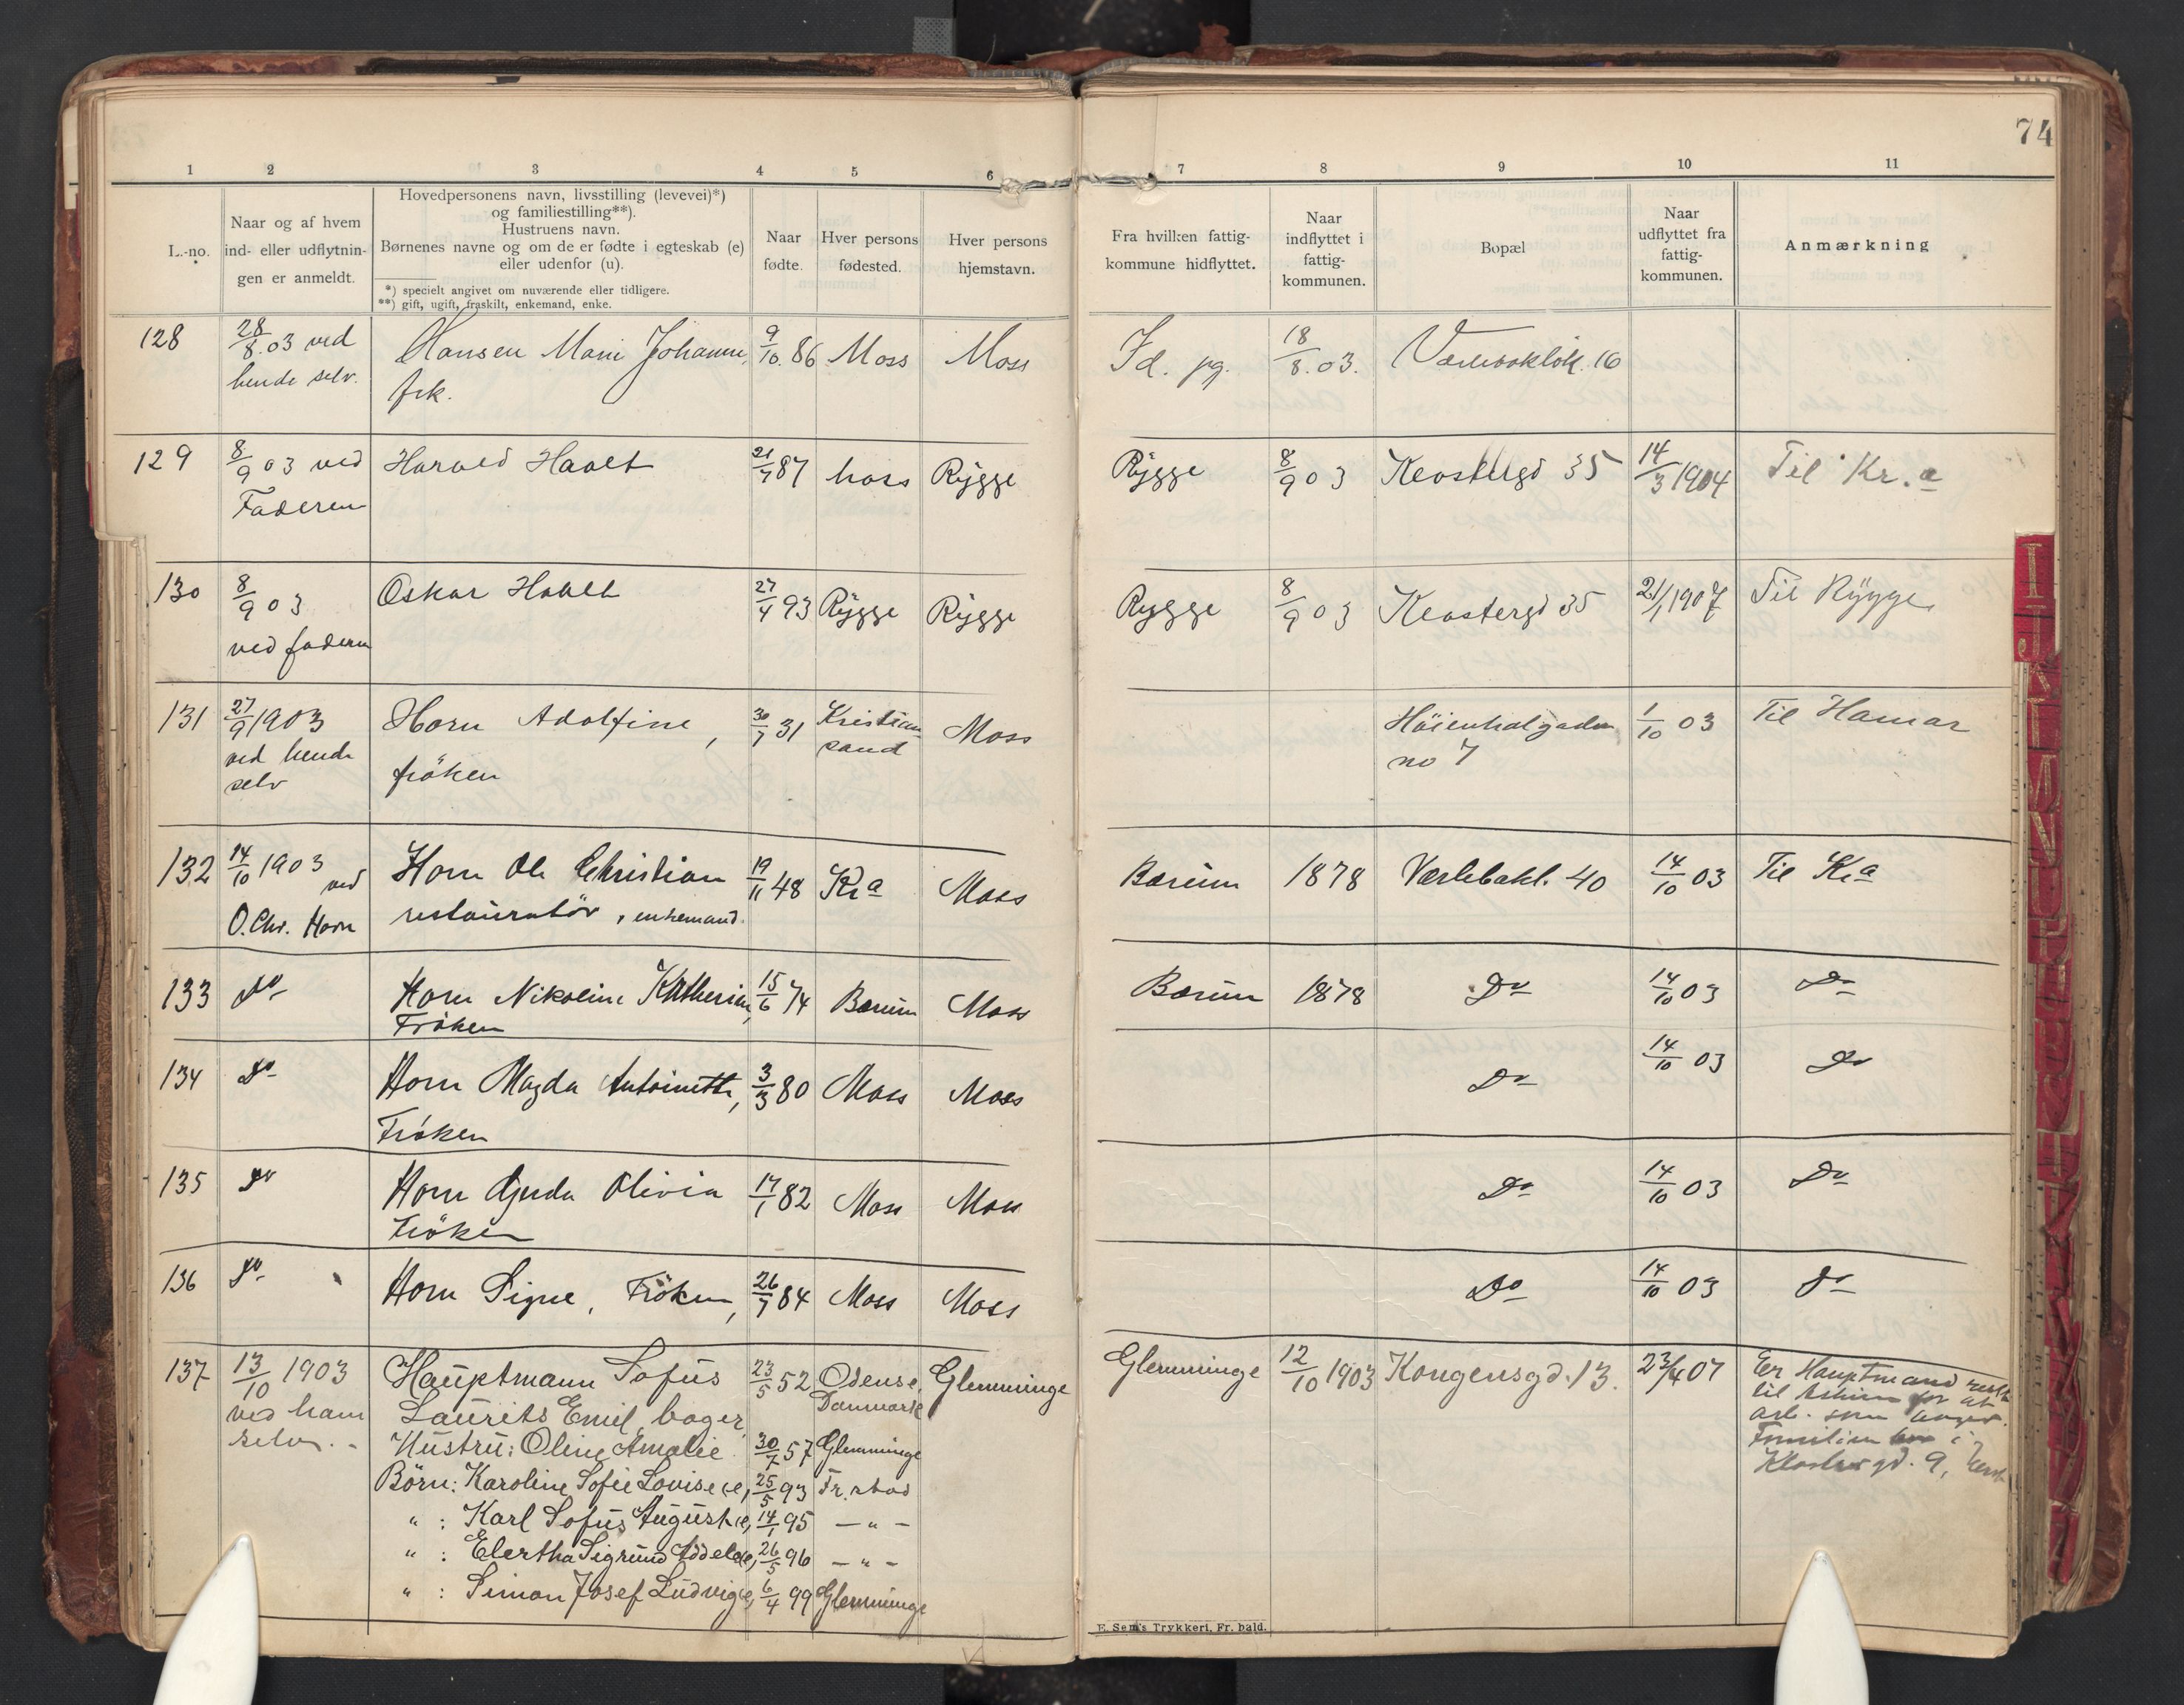 74
1 2 3 4 5 6 7 8 9 10 11
L.-no.
Naar og af hvem
ind- eller udflytnin-
gen er anmeldt.
Hovedpersonens navn, livsstilling (levevei)*)
og familiestilling**).
Hustruens navn.
Børnenes navne og om de er fødte i egteskab (e)
eller udenfor (u).
*) specielt angivet om nuværende eller tidligere.
**) gift, ugift, fraskilt, enkemand, enke.
Naar
fødte.
Hver persons
fødested.
Hver persons
hjemstavn.
Fra hvilken fattig-
kommune hidflyttet.
Naar
indflyttet i
fattig-
kommunen.
Bopæl
Naar
udflyttet fra
fattig-
kommunen.
Anmærkning
128 28/8.03 ved Hansen Marie Johanne, 9/10.86 Moss Moss Id. pg. 18/8.03. 16
hende selv. frk.
129 8/9 03 ved Harald Haalt 21/7 87 Rygge Rygge 8/9 03 Klostergd 35 14/3 1904 Til Kr.a
Faderen
130 8/9 03 Oskar Haalt 27/4 93 Rygge Rygge Rygge 8/9 03 Klostergd 35 21/1 1907 Til Rygge
ved faderen
131 27/9 1903 Horn Adolfine, 30/7 31 Kristian- Moss Höienhalgaden 1/10 03 Til Hamar
ved hende sand no 7
selv fröken
132 14/10 1903 ved Horn Ole Christian 19/11 48 Kra Moss Bærum 1878 Værlebakl. 40 14/10 03 Til Kra
O. Chr. Horn restauratör, enkemand.
133 Do Horn Nikoline Katherine, 15/6 74 Bærum Moss Bærum 1878 Do 14/10 03 Do
Fröken
134 Do Horn Magda Antoinette, 3/3 80 Moss Moss Do 14/10 03 Do
Fröken
135 Do Horn Olivia 17/1 82 Moss Moss Do 14/10 03 Do
Fröken
136 Do Horn Signe, Fröken, 26/7 84 Moss Moss Do 14/10 03 Do
137 13/10 1903 Hauptmann Sofus 23/5 52 Odense, Glemminge Glemminge 12/10 1903 Kongensgd. 13. 23/4 07 Er Hauptmand
ved ham Laurits Emil, bager, Danmark til for at
selv. - Hustru: Oline Amalie 30/7 57 Glemminge arb. som
Börn: Karoline Sofie Lovise (e), 25/5 93 Fr.stad Familien bor i
" : Karl Sofus August (e), 14/1 95 — " — Klostergd. 9,
" : Elertha Sigrund (e), 26/5 96 — " —
" : Simon Josef Ludvig (e), 6/4 99 Glemminge
E. Sem's Trykkeri, Fr. hald.